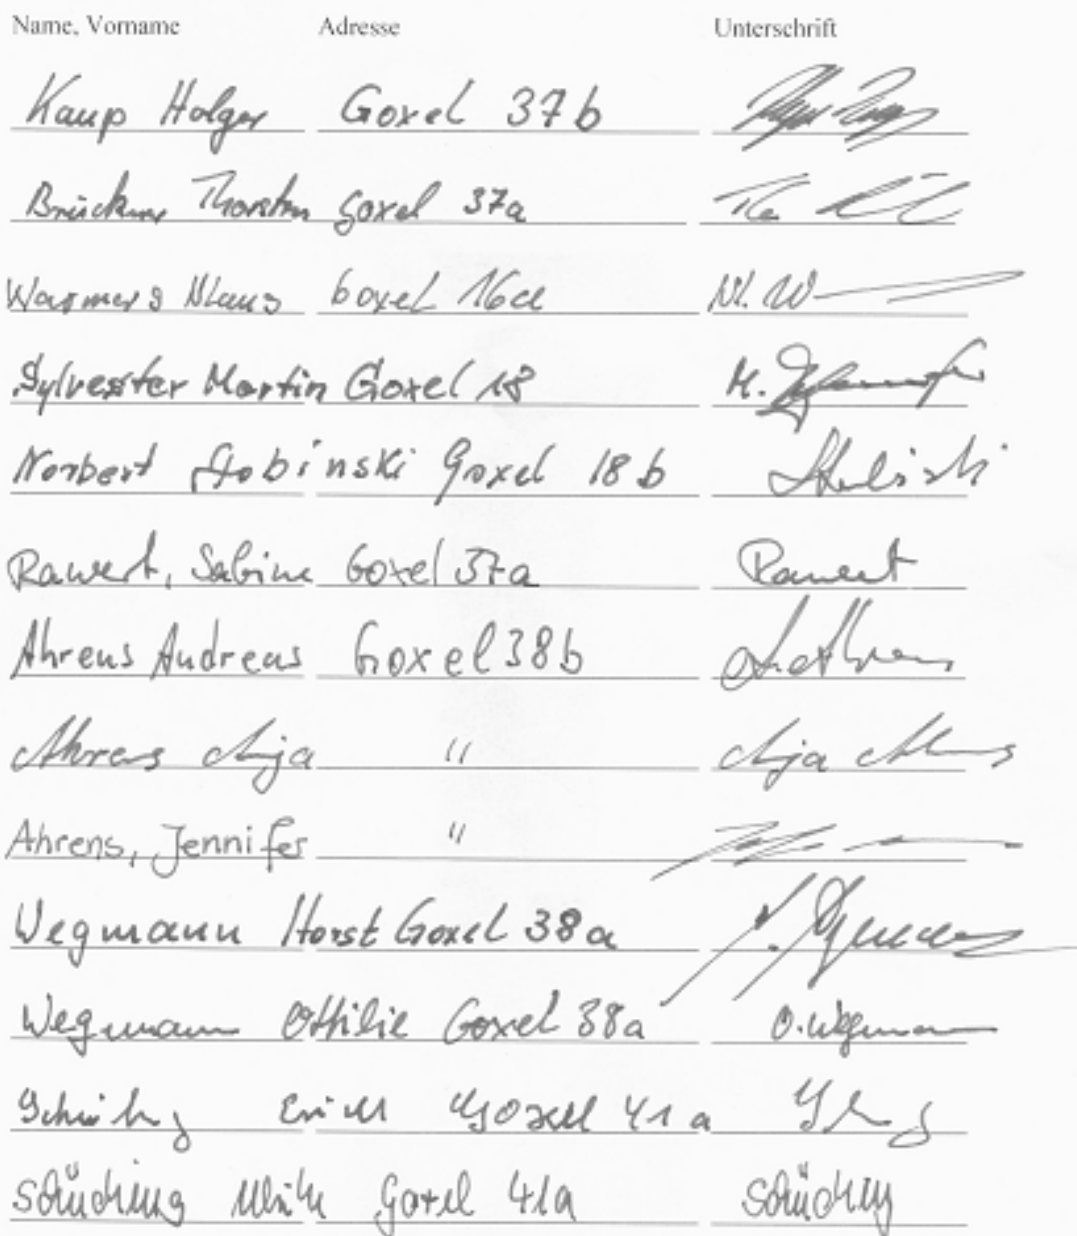 Name, Vorname Adresse Unterschrift
Kaup Holger Goxel 37b
Brückner Thorsten Goxel 37a
Klaus Goxel 16a
Sylvester Martin Goxel 18 M.
Norbert Stobinski Goxel 18b
Rawert, Sabine Goxel 37a Rawert
Ahrens Andreas Goxel 38b
Ahrens Anja " Anja Ahrens
Ahrens, Jennifer "
Wegmann Horst Goxel 38a
Wegmann Ottilie Goxel 38a O. Wegmann
Goxel 41a
Schüching Ulrike Goxel 41a Schüching